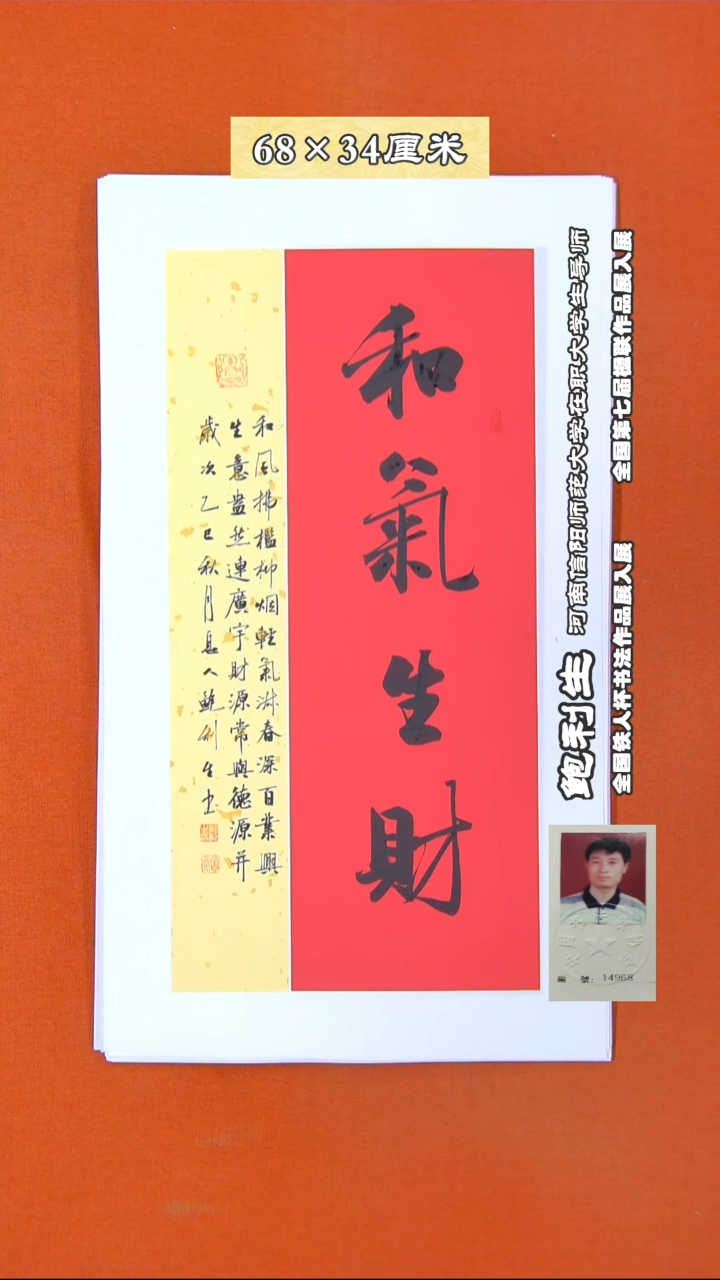 68×34厘米
和氣生財
和風拂檻柳烟輕氣淑春深百業興
生意盎然連廣宇財源常與德源并
歲次乙巳秋月息人鮑利生书
鲍利生 河南信阳师范大学在职大学生导师
全国铁人杯书法作品展入展 全国第七届楹联作品展入展
編 號: 14968